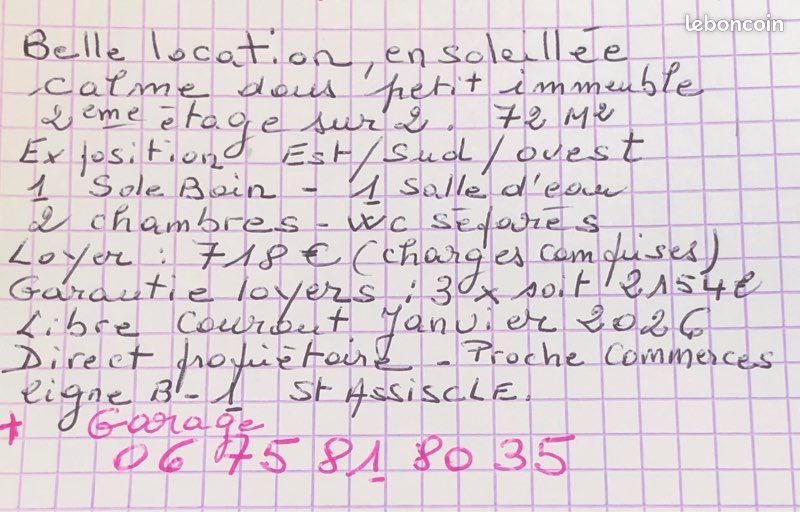 leboncoin
Belle location, ensoleillée
calme dans petit immeuble
2eme étage sur 2. 72 M2
Exposition Est/Sud/ouest
1 Sale Bain - 1 salle d'eau
2 chambres - WC séparés
Loyer : 718 € (charges comprises)
Garantie loyers : 3 x soit 2154€
Libre courant Janvier 2026
Direct propriétaire - Proche Commerces
ligne B - 1 St ASSISCLE.
+ Garage
06 75 81 80 35